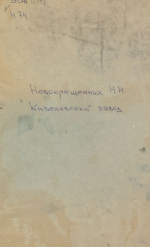 Н74
Новокрещенных Н.Н.
Кизеловский завод